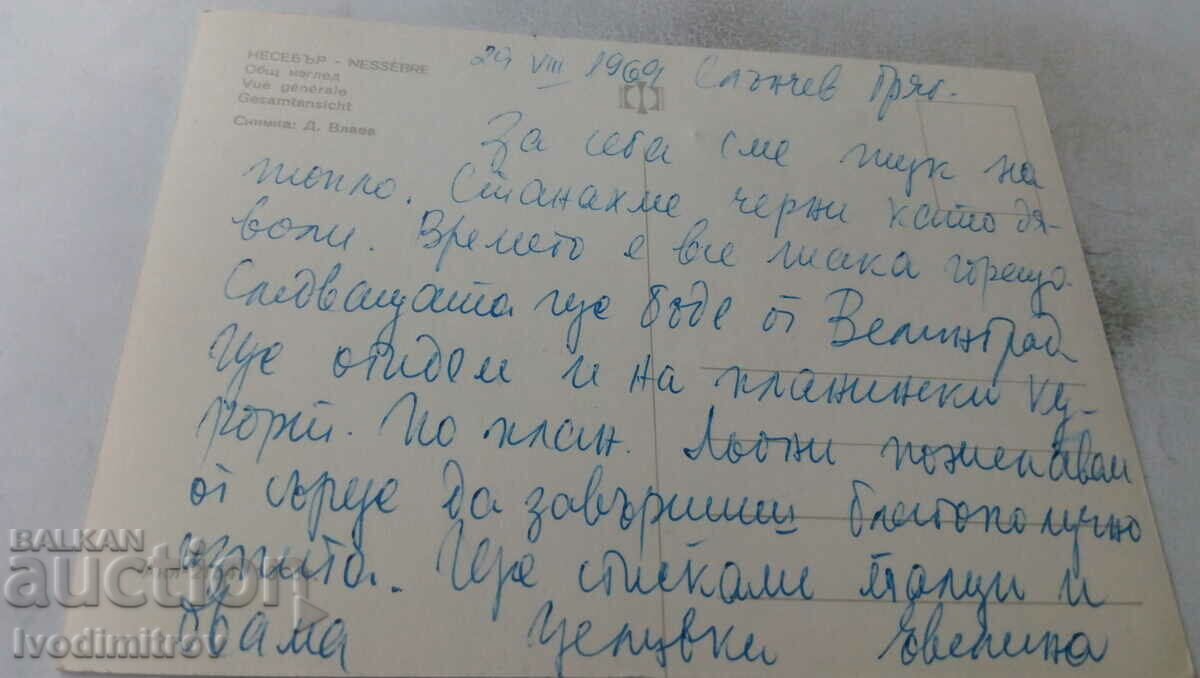 НЕСЕБЪР - NESSÈBRE
Общ изглед
Vue générale
Gesamtansicht
Снимка: Д. Влаев
29 VIII 1969 Слънчев Бряг.
За сега сме тук на
топло. Станахме черни като дя-
воли. Времето е все така горещо.
Следващата ще бъде от Велинград
Ще отидем и на планински ку-
рорт. По план. Льони пожелавам
от сърце да завършиш благополучно
изпита. Ще стискаме палци и
двама Целувки Евелина
BALKAN
auction
Ivodimitrov